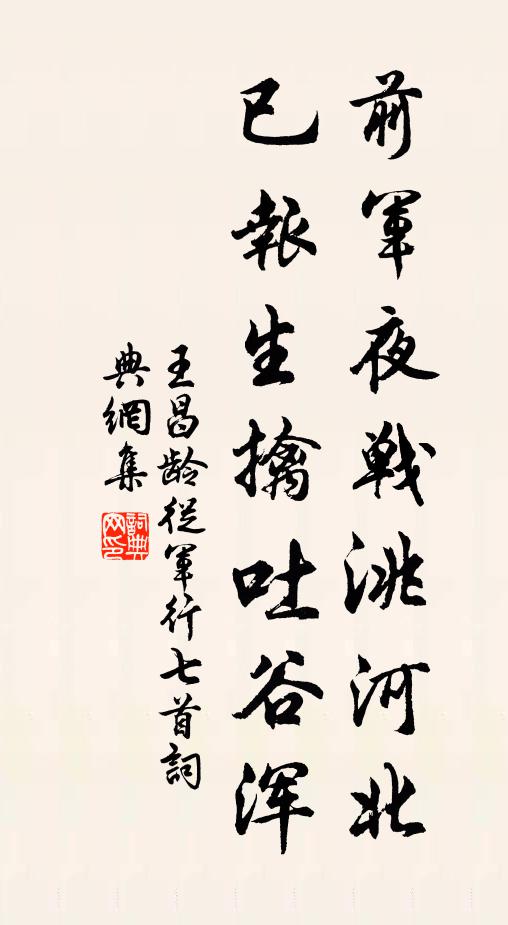 前軍夜戦洮河北
已報生擒吐谷浑
王昌龄從軍行七首詞
典網集
詞典網印